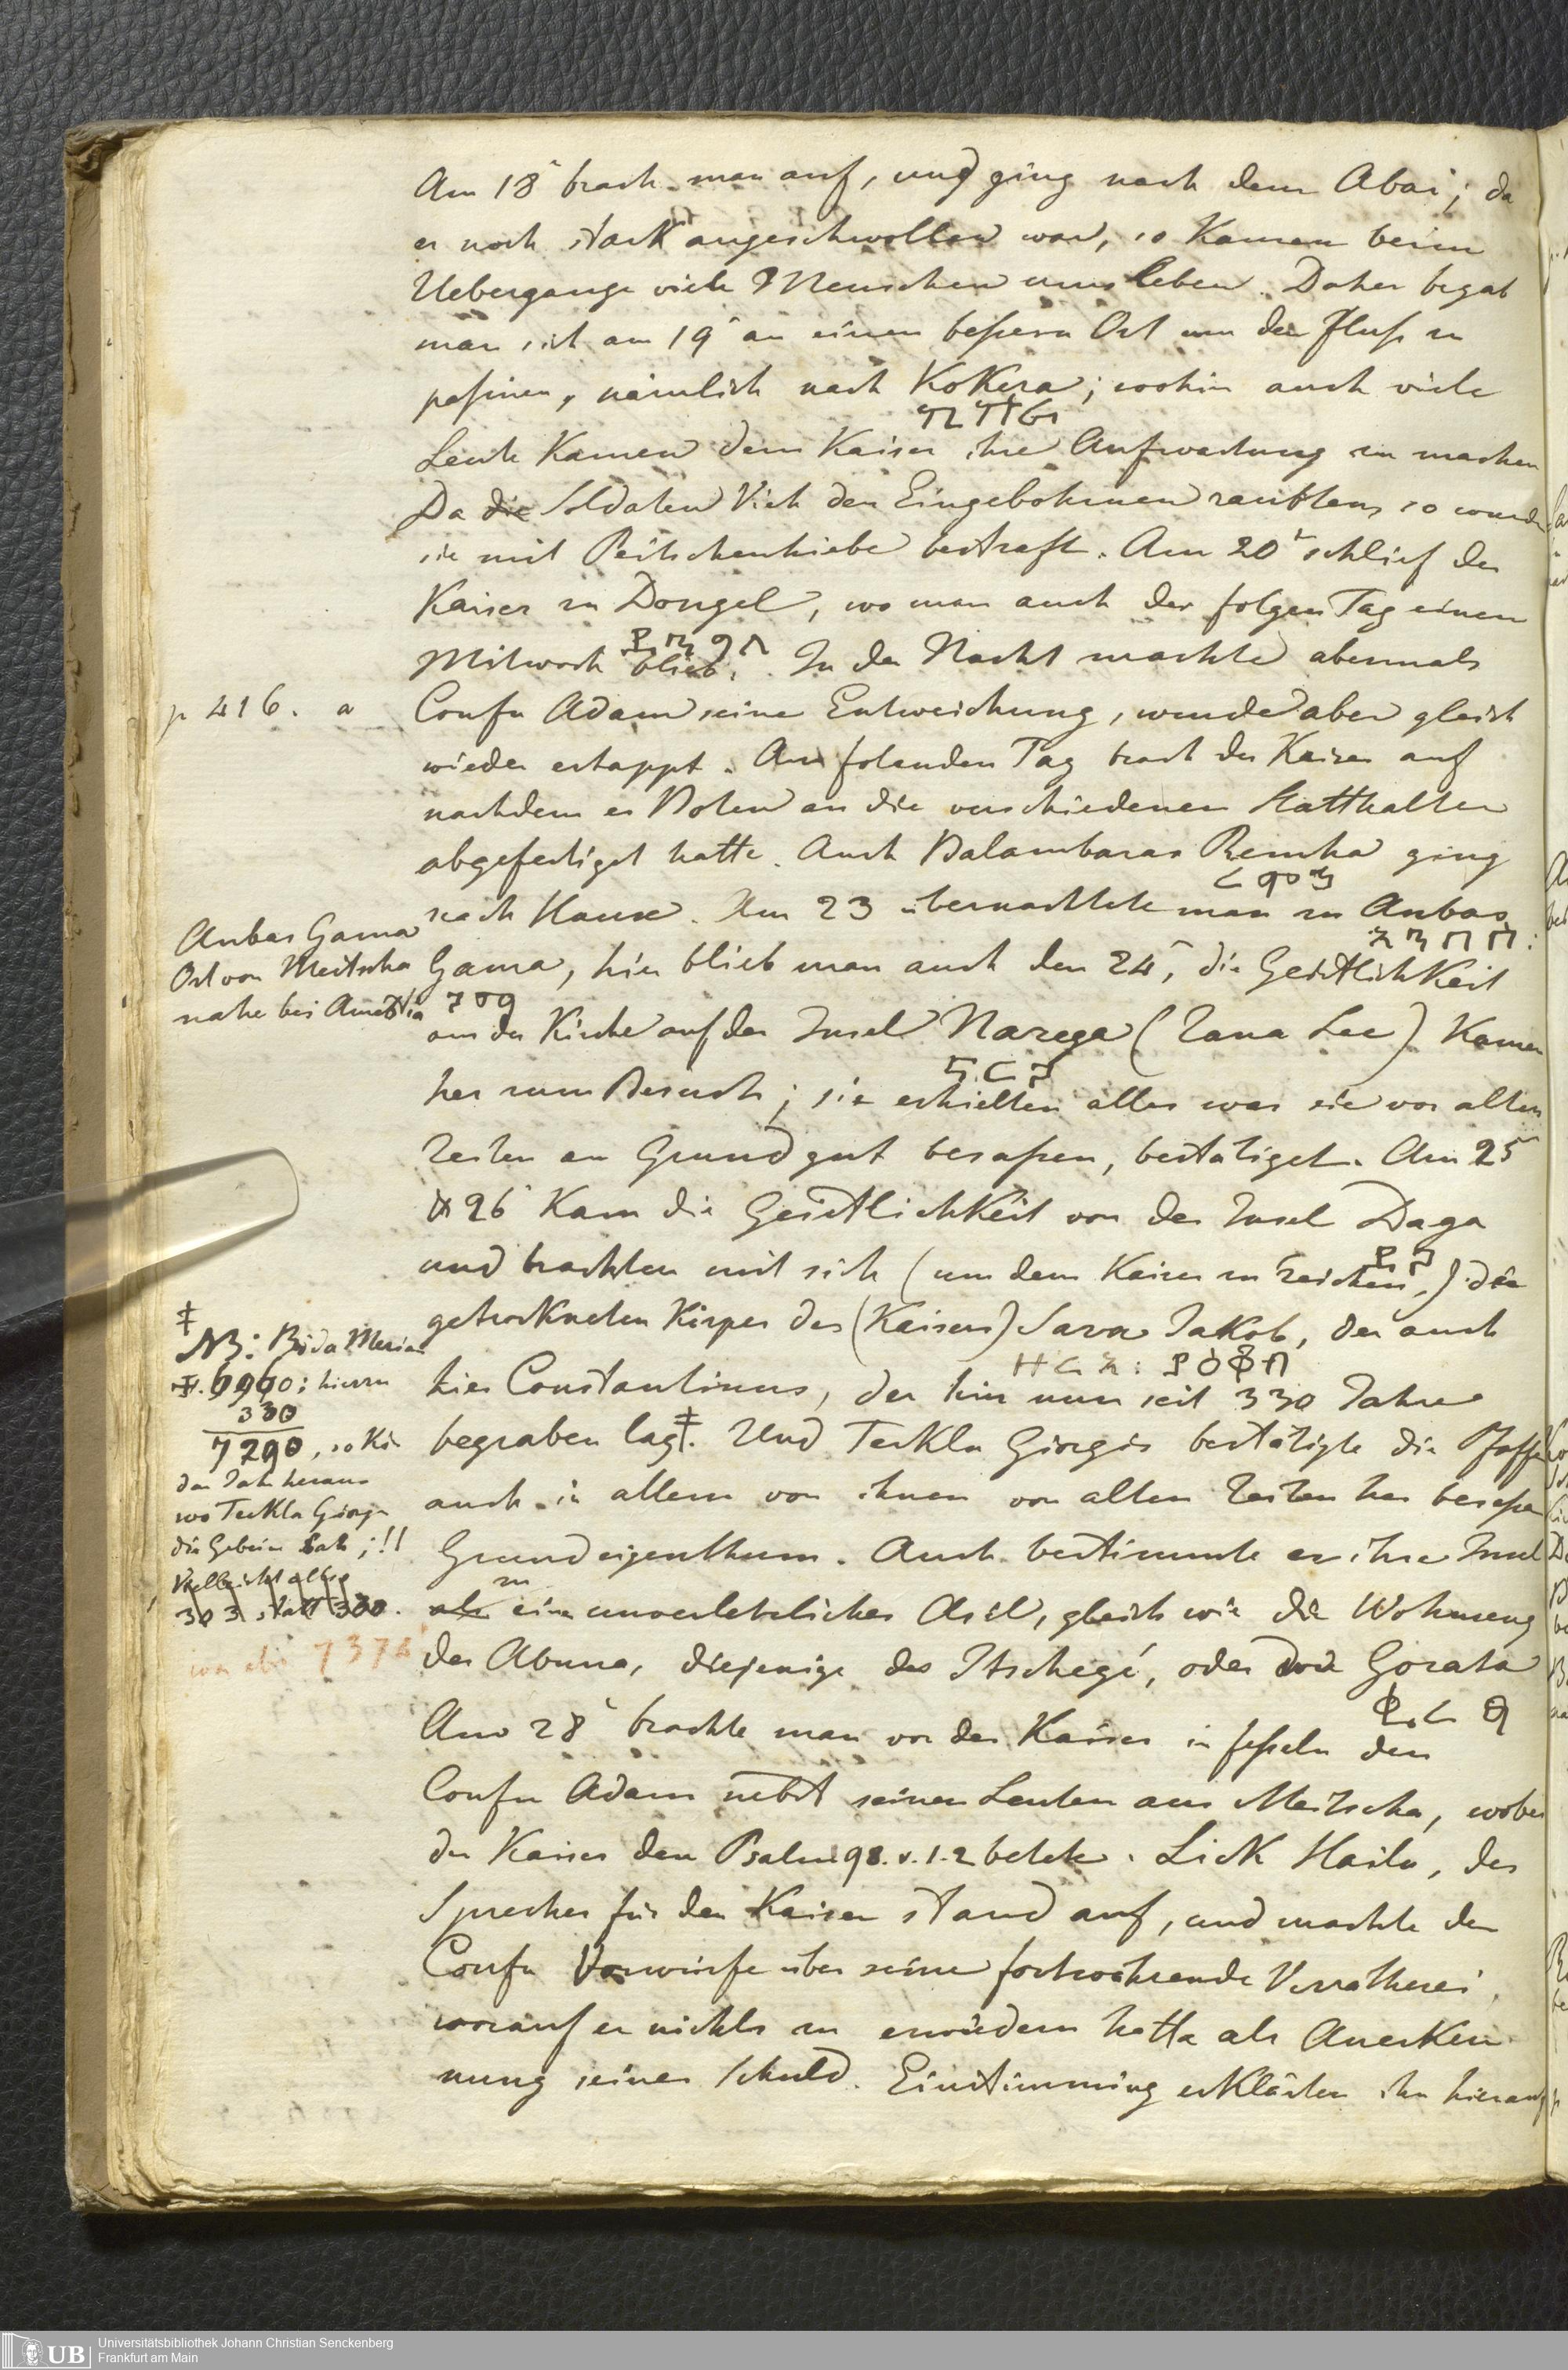 Am 18t brach man auf, und ging nach dem Abai; da
er noch stark angeschwollen war, so kamen beim
Uebergange viele Menschen ums Leben. Daher begab
man sich am 19t an einen beßern Ort um den Fluß zu
paßiren, nämlich nach Kokera; wohin auch viele
Leute kamen dem Kaiser ihre Aufwartung zu machen
Da die Soldaten Vieh den Eingebohrnen raubten, so wurden
sie mit Peitschenhiebe bestraft. Am 20t schlief der
Kaiser zu Dongel, wo man auch der folgen Tag einen
Mitwoch blieb. In der Nacht machte abermals
p 416. a
Confu Adam seine Entweichung, wurde aber gleich
wieder ertappt. Am folenden Tag brach der Kaiser auf
nachdem er Boten an die verschiedenen Statthalter
abgefertiget hatte. Auch Balambaras Remha ging
nach Hause. Am 23 übernachtete man zu Anbas
Anbas Gama
Ort von Meitscha
nahe bei
Gama, hier blieb man auch den 24t, die Geistlichkeit
ገማ
aus der Kirche auf der Insel Narega (Zana See) kamen
her zum Besuch; sie erhielten alles was sie von alten
Zeiten an Grundgut besaßen, bestätiget. Am 25
26t kam die Geistlichkeit von der Insel Daga
und brachten mit sich (um dem Kaiser zu zeichen,) die
getrockneten Körper des (Kaisers) Sara Jakob, der auch
ዘርአ: ያዕቆብ
hies Constantinus, der hier nun seit 330 Jahre
begraben lag ‡. Und Teckla Giorgis bestätigte die Pfaffen
auch in allem von ihnen von alten Zeiten her beseßen
Grundeigenthum. Auch bestimmte er ihre Insel
als zu ein unverletzliches Asil, gleich wie die Wohnung
des Abuna, diejenige des Itschegé, oder Gorata
‡
NB: Meriam
6960; hierzu
330
7290, so
das Jahr heraus
wo Teckla Giorgis
die Gebeine sah;!!
Vielleicht also
303 statt 330.
Am 28t brachte man vor den Kaiser in feßeln den
Confu Adam nebst seinen Leuten aus Meitscha, wobei
der Kaiser den Psalm 98. v. 1.2 betete. Lick Hailu, der
Sprecher für den Kaiser stand auf, und machte den
Confu Vorwürfe über seine fortwährende Verrätherei
worauf er nichts zu erwiedern hatte als Anerken
nung seiner Schuld. Einstimming erklärten ihn hierauf
UB
Universitätsbibliothek Johann Christian Senckenberg
Frankfurt am Main